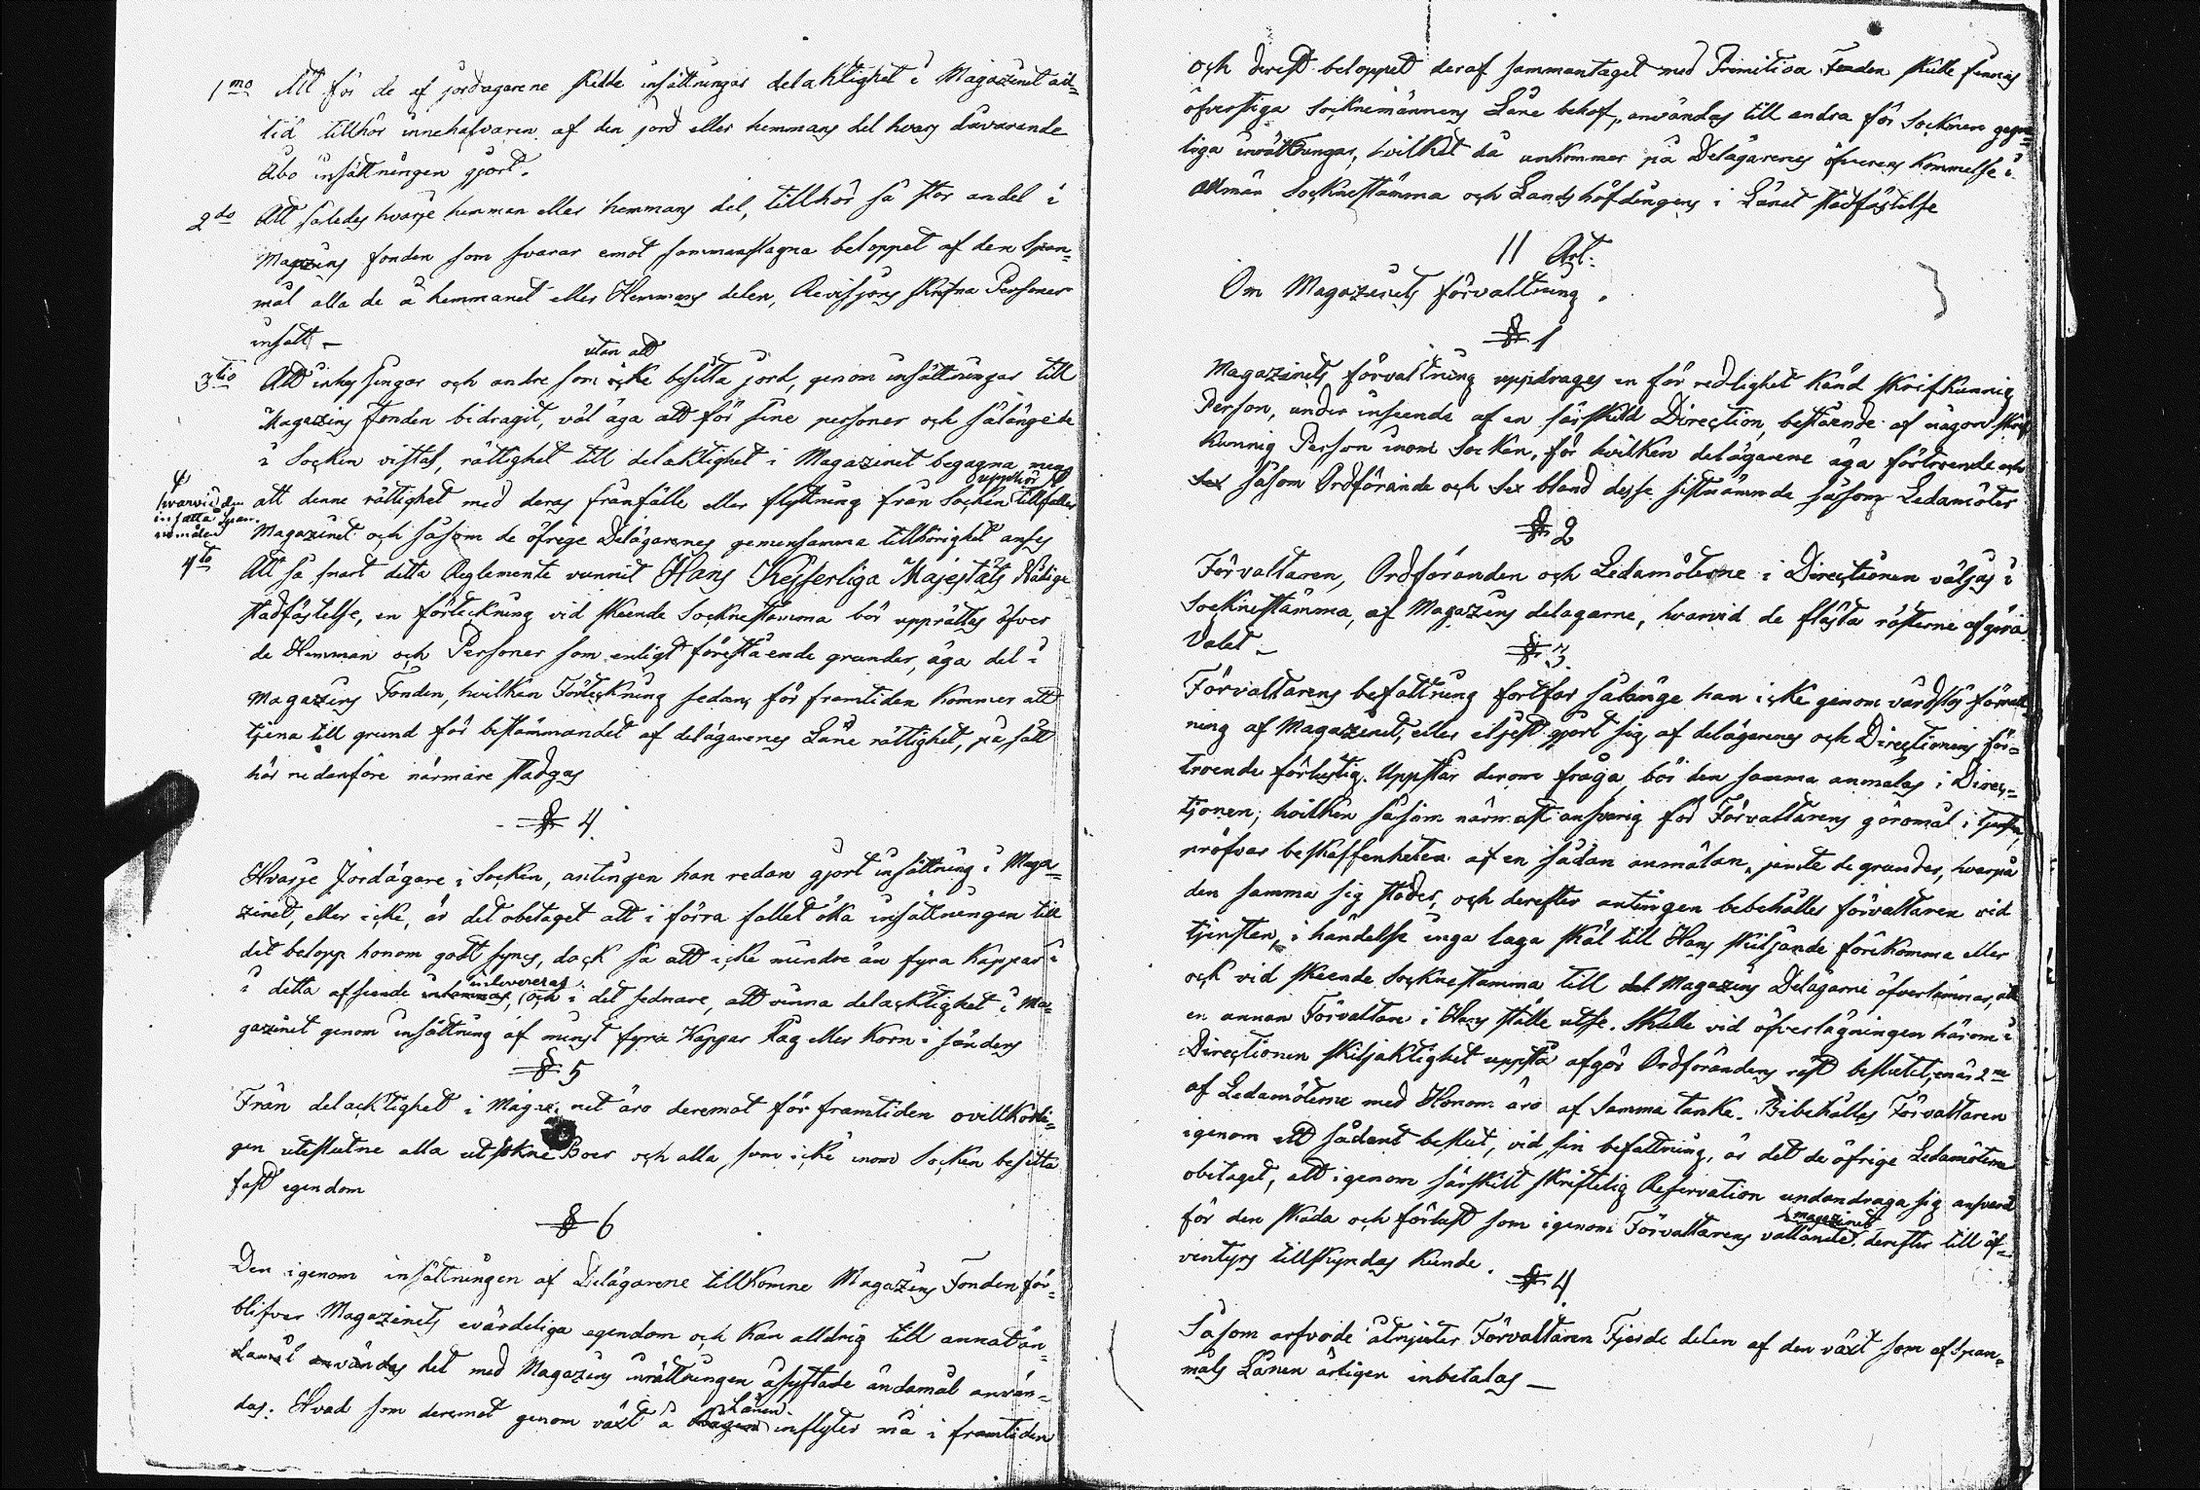 1mo Att för de af jordägarene skedde insättningar delaktighet i Magazinet all-
tid tillhör innehafvaren af den jord eller hemmans del hvars duvarande
Åbo insättningen gjort.
2do Att således hvarje hemman eller hemmans del, tillhör så stor andel i
Magazins fonden som svarar emot sammanslagna beloppet af den Span-
mål alla de å hemmanet eller Hemmans delen, Revisjons skrifna Personer
insatt –
utan att
3tio Att inhysingar och andre som icke besitta jord, genom insättningar till
Magazins Fonden bidragit, väl äga att för sine personer och sålänge de
i Socken vistas, rättighet till delaktighet i Magazinet begagna, men
upphör
att denne rättighet med deras frånfälle eller flyttning från Socken tillfaller
hvarvid den
insatta Span-
målen
Magazinet och såsom de öfrege Delägarenes gemensamma tillhörighet anses
4to Att så snart detta Reglemente vunnit Hans Kejserliga Majestäts Nådige
stadfästelse, en förteckning vid skeende Socknestämma bör upprättas öfver
de Hemman och Personer som enligt förestående grunder, äga del i
Magazins Fonden, hvilken Förteckning sedan, för framtiden kommer att
tjena till grund för bestämmandet af delägarenes Låne rättighet, på sätt
här nedanföre närmare stadgas
§ 4
Hvarje Jordägare i Socken, antingen han redan gjort insättning i Maga-
zinet, eller icke, är det obetaget att i förra fallet öka insättningen till
det belopp honom godt synes, dock så att icke mindre än fyra Kappar
inlevereras
i detta afseende inlemnas, och i det sednare, att vinna delacktighet i Ma-
gazinet genom insättning af minst fyra Kappar Råg eller Korn i sönders
§ 5
Från delacktighet i Magazinet äro deremot för framtiden ovillkorli-
gen uteslutne alla utsokne Boer och alla, som icke inom Socken besitta
fast egendom
§ 6
Den igenom insättningen af Delägarene tillkomne Magazins Fonden för-
blifver Magazinets evärdeliga egendom och kan alldrig till annat än-
damål användas det med Magazins inrättningen åsyftade ändamål använ-
lånen
das. Hvad som deremot genom växt å inflyter må i framtiden
och derest beloppet deraf sammantaget med Primitiva Fonden skulle finnas
öfverstiga Socknemännens Låne behof, användas till andra för Socknen gagne-
liga inrättningar, hvilket då ankommer på Delägarenes öfverens kommelse i
Allmän Socknestämma och Landshöfdingens i Länet stadfästelse
II Art:
Om Magazinets förvaltning.
§ 1
Magazinets förvaltning uppdrages en för redlighet känd skrifkunnig
Person, under inseende af en särskild Direction, bestående af någon skrif-
kunnig Person inom Socken, för hvilken delägarene äga förtroende och
sex såsom Ordförande och sex bland desse sistnämnde såsom Ledamöter
§ 2
Förvaltaren, Ordföranden och Ledamöterne i Directionen väljas i
Socknestämma, af Magazins delagarne, hvarvid de flästa rösterne afgöra
Valet –
§ 3.
Förvaltarens befattning fortfar sålänge han icke genom vårdslös förvalt-
ning af Magazinet, eller eljest gjort sig af delägarenes och Directionens för-
troende förlustig. Uppstår derom fråga, bör den samma anmälas i Direc-
tjonen, hvilken såsom närmast ansvarig för Förvaltarens göromål i tjensten,
pröfvar beskaffenheten af en sådan anmälan, jemte de grunder, hvarpå
den samma sig stöder, och derefter antingen bebehåller förvaltaren vid
tjensten, i händelse inga laga skäl till Hans skiljande förekomma eller
ock vid skeende Socknestamma till Magazins Delägarne öfverlämnar, att
en annan Förvaltare i Hans ställe utse. Skulle vid öfverlägningen härom i
Directionen skiljaktighet uppstå afgör Ordförandens röst beslutet, enär 2ne
af Ledamöterne med Honom äro af samma tanke. Bibehålles Förvaltaren
igenom ett sådant beslut, vid sin befattning, är det de öfrige Ledamöterne
obetaget, att igenom särskilt skriftelig Reservation undandraga sig ansvaret
magazinet
för den skada och förlust som igenom Förvaltarens vållande derefter till äf-
ventyrs tillskyndas kunde.
§ 4
Såsom arfvode åtnjuter Förvaltaren Fjerde delen af den växt som af Span-
måls Lånen årligen inbetalas –